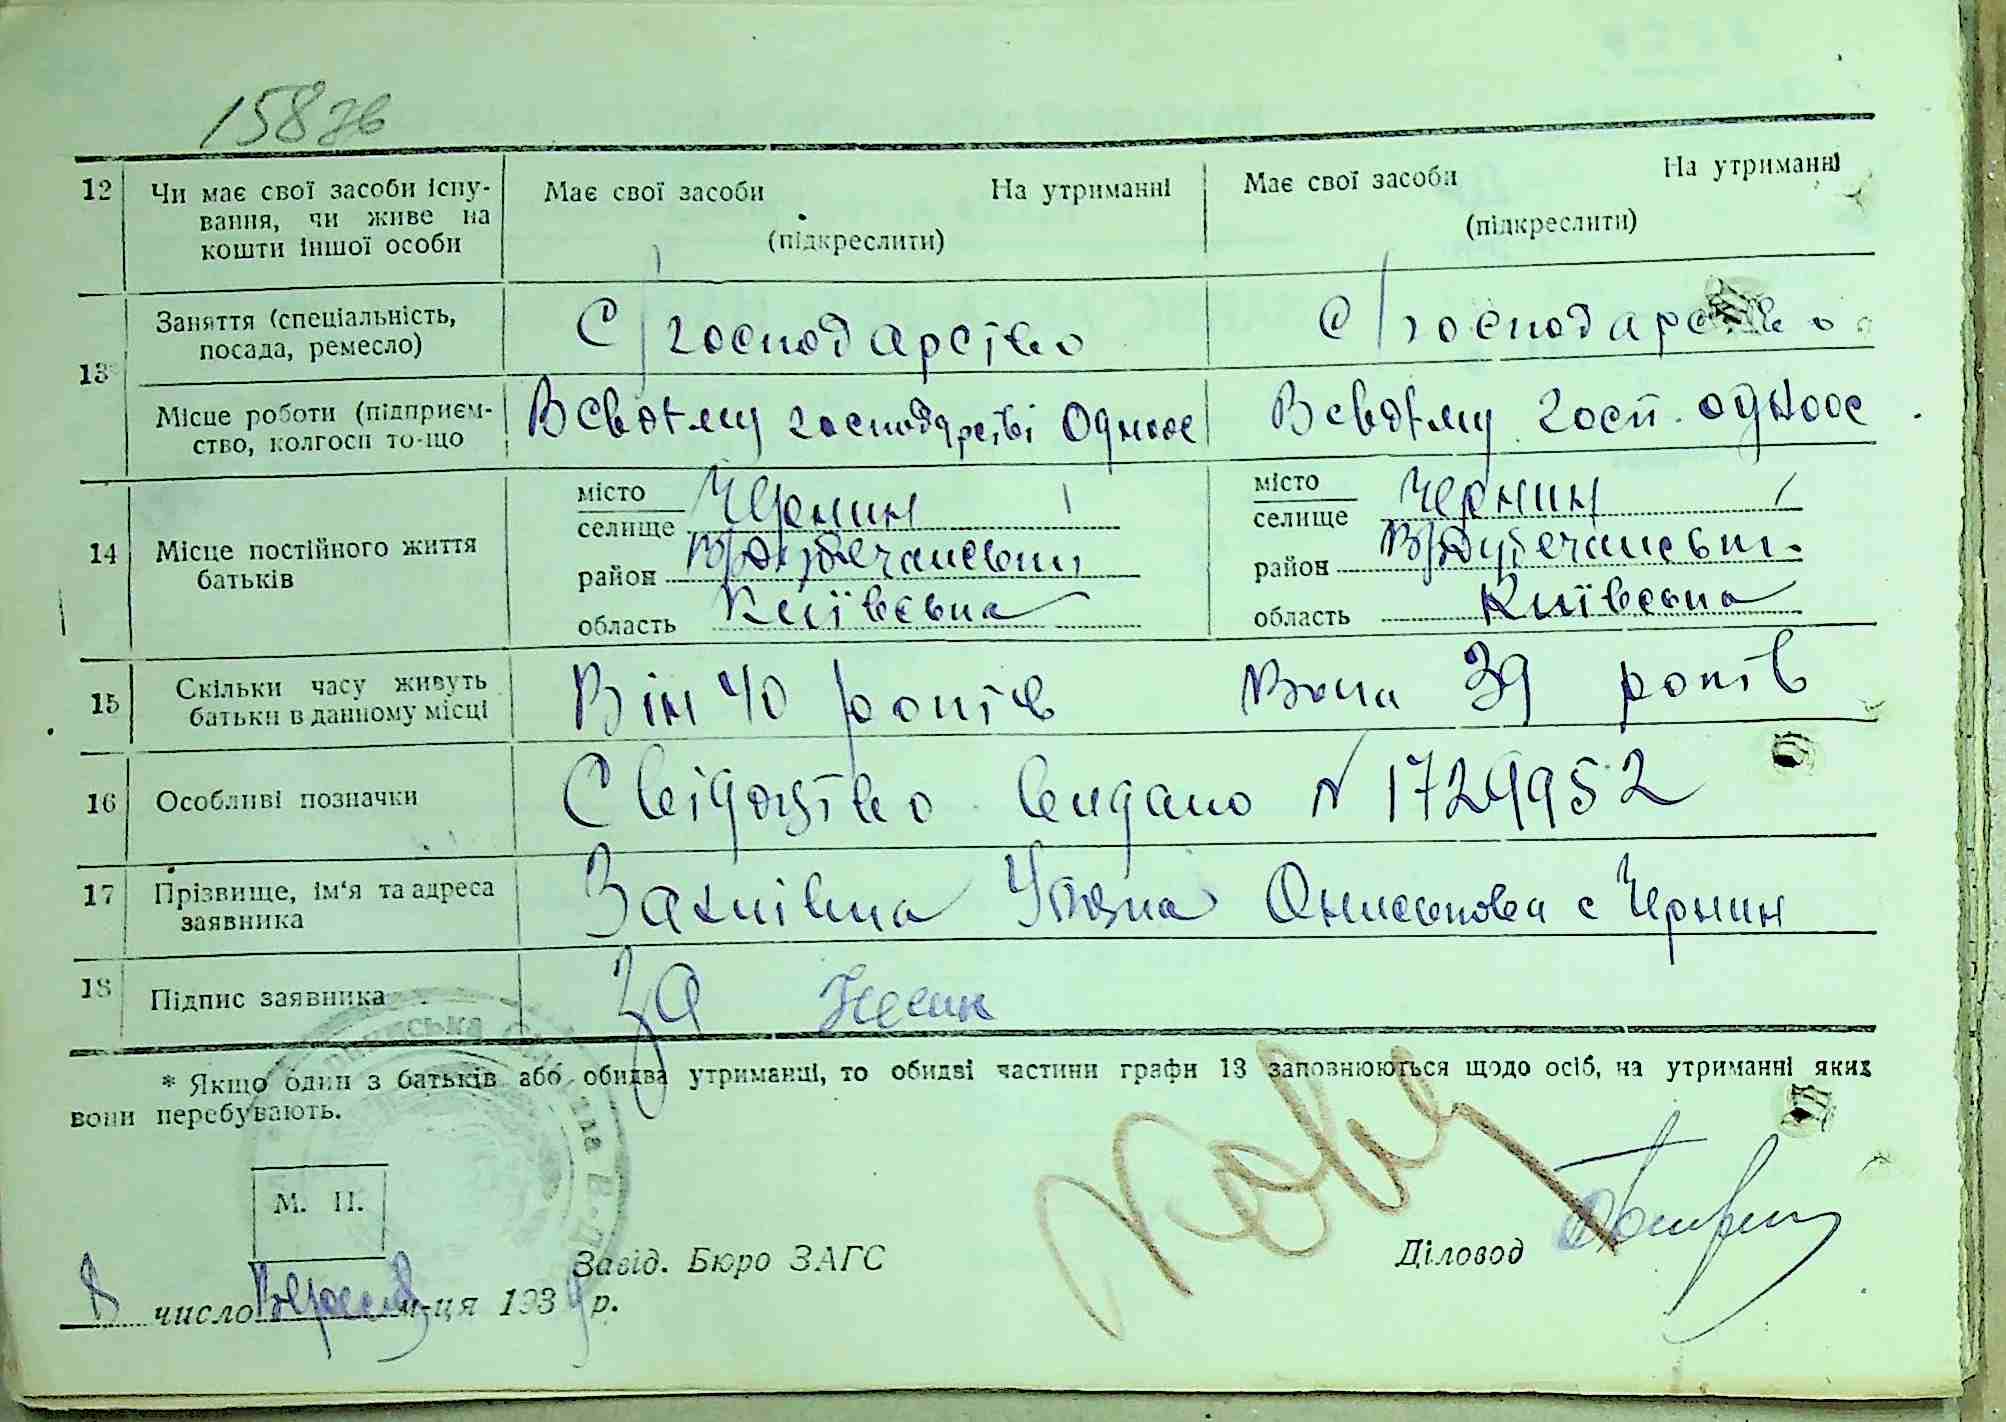 158зв
12 Чи має свої засоби існу-
вання, чи живе на
кошти іншої особи
Має свої засоби На утриманні
(підкреслити)
Має свої засоби На утриманні
(підкреслити)
13
Заняття (спеціальність,
посада, ремесло)
С/господарство
С/господарство
Місце роботи (підприєм-
ство, колгосп то-що
В свогму господарстві Одноос
В свогму госп. одноос
14 Місце постійного життя
батьків
місто
селище Чернин
район В/Дубечанський
область Київська
місто
селище Чернин
район В/Дубечанськ.
область Київська
15 Скільки часу живуть
батьки в данному місці
Він 40 років Вона 39 років
16 Особливі позначки
Свідоцтво видано N 1729952
17 Прізвище, ім‘я та адреса
заявника
Уляна с Чернин
18 Підпис заявника
За
* Якщо один з батьків або обидва утриманці, то обидві частини графи 13 заповнюються щодо осіб, на утриманні яких
вони перебувають.
М. П.
Завід. Бюро ЗАГС
Діловод
8 число Вересня м-ця 1939 р.